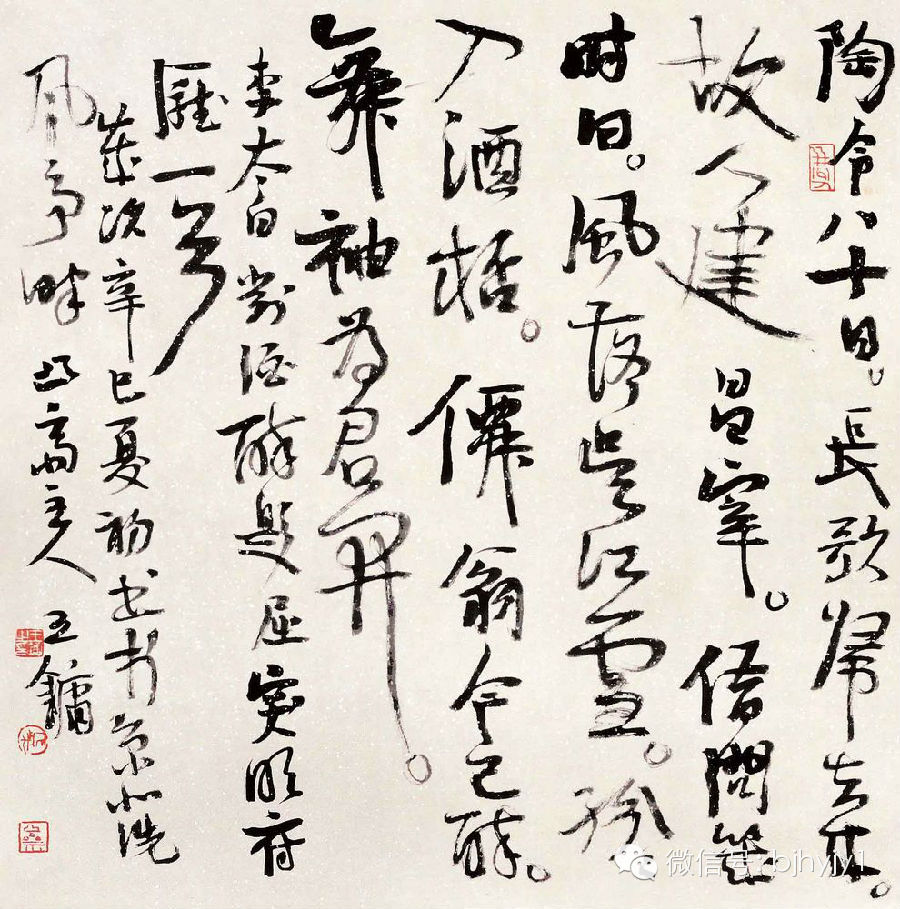 陶令八十日。長歌歸去来。
故人建昌宰。借問幾
時回。風落吳江雪。紛〻
入酒杯。僊翁今已醉。
舞袖為君開。
李太白對酒醉題屈突明府
廳一首
歲次辛巳夏初書於京北洗
風亭畔 凸齋主人 王鏞
微信号: bjhyjy1